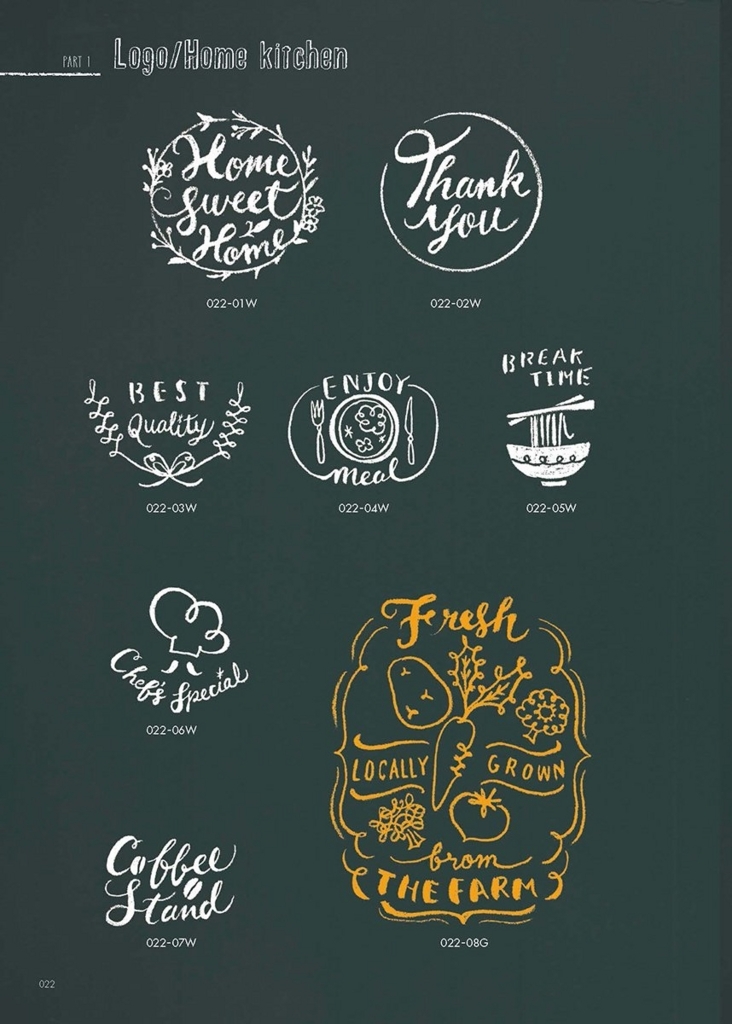 PART 1
Logo/Home kitchen
Home
sweet
Home
022-01W
Thank
you
022-02W
BEST
Quality
022-03W
ENJOY
meal
022-04W
BREAK
TIME
022-05W
Chef's Special
022-06W
Coffee
Stand
022-07W
Fresh
LOCALLY GROWN
from
THE FARM
022-08G
022